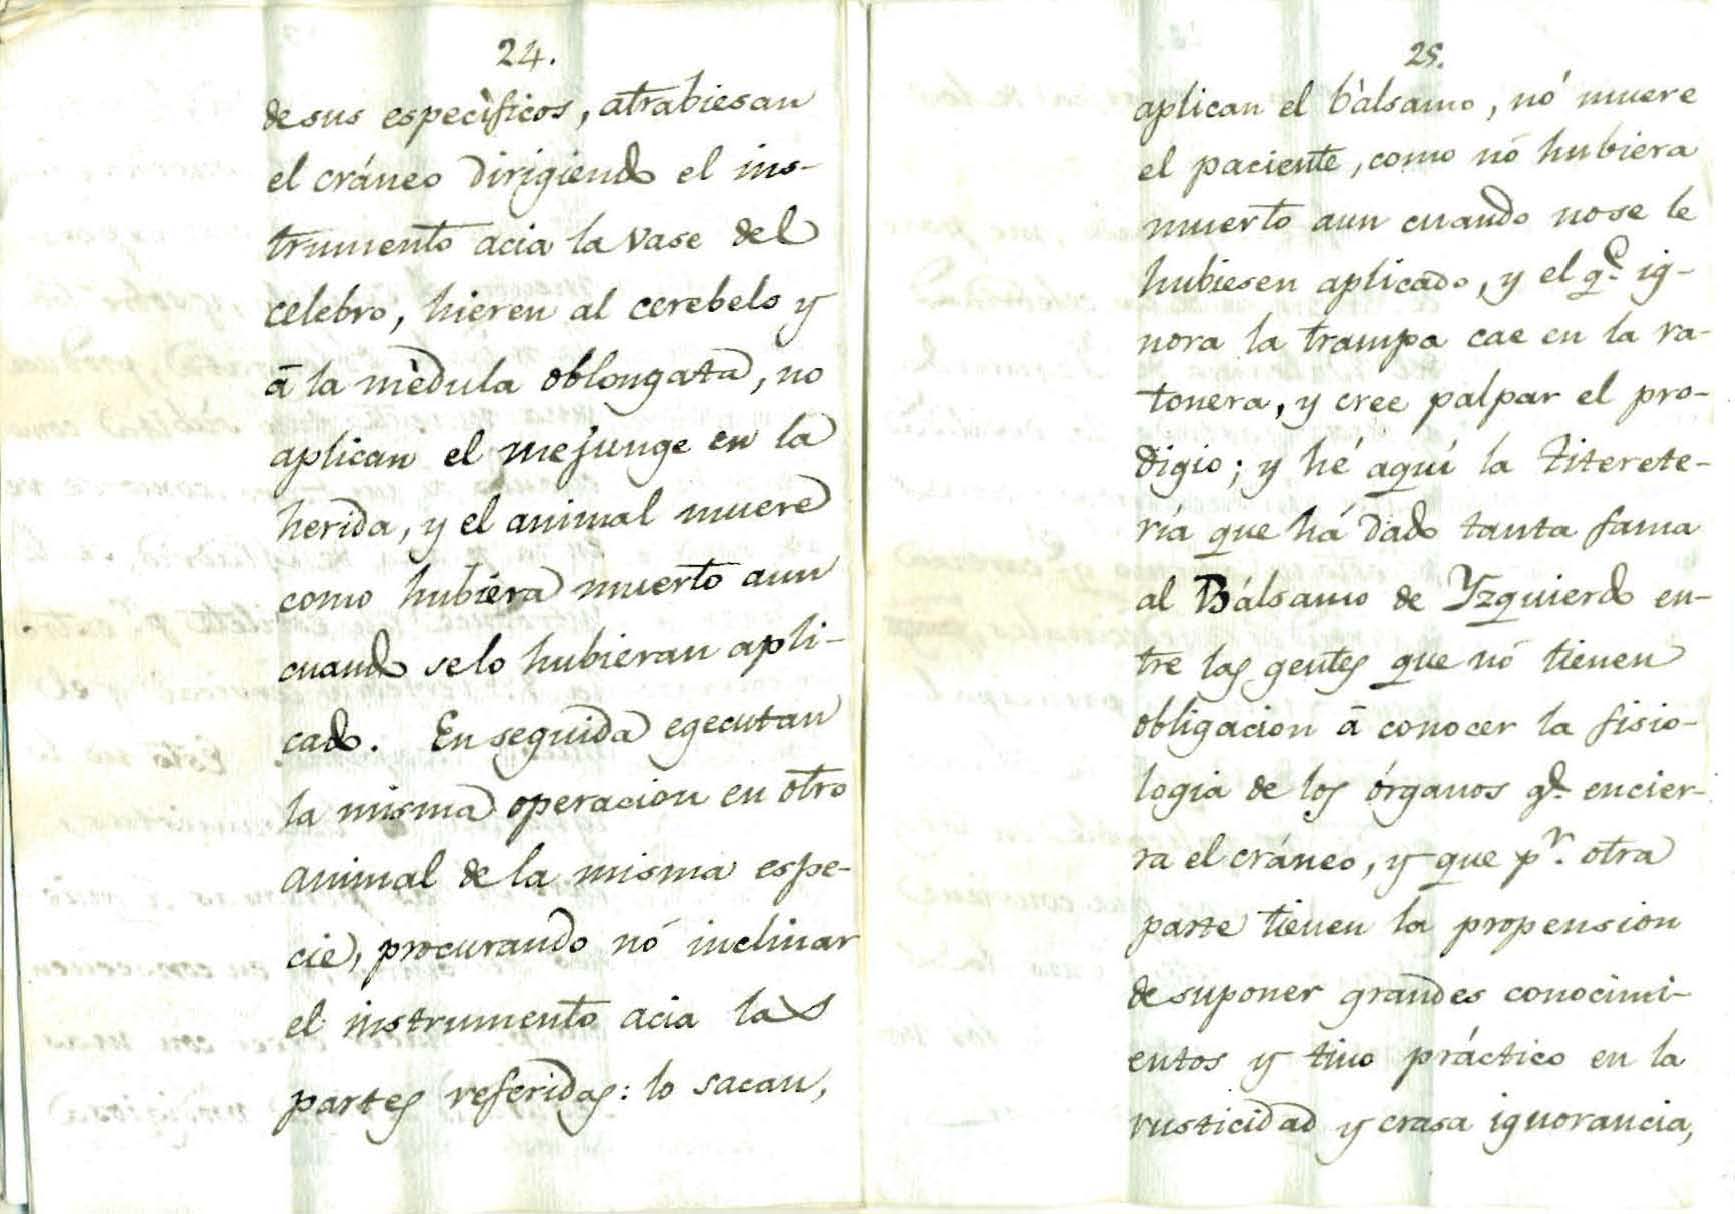 24.
de sus especìficos, atrabiesan
el cráneo dirigiendo el ins-
trumento acia la vase del
celebro, hieren al cerebelo y
ā la mèdula oblongata, no
aplican el mejunge en la
herida, y el animal muere
como hubiera muerto aun
cuando selo hubieran apli-
cado. En seguida egecutan
la misma operacion en otro
animal de la misma espe-
cie, procurando nó inclinar
el instrumento acia las
partes referidas: lo sacan,
25.
aplican el bàlsamo, nó muere
el paciente, como nó hubiera
muerto aun cuando nose le
hubiesen aplicado, y el qe. ig-
nora la trampa cae en la ra-
tonera, y cree palpar el pro-
digio; y hé aquí la titerete-
ría que há dado tanta fama
al Bálsamo de Yzquierdo en-
tre las gentes que nó tienen
obligacion ā conocer la fisio-
logia de los órganos qe. encier-
ra el cráneo, y que pr. otra
parte tienen la propension
de suponer grandes conocimi-
entos y tino práctico en la
rusticidad y crasa ignorancia,